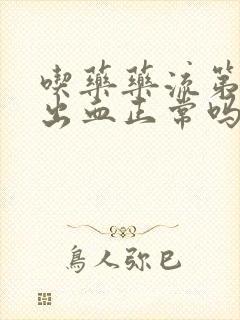 喫藥藥流第
出血正常吗
鳥人弥巳